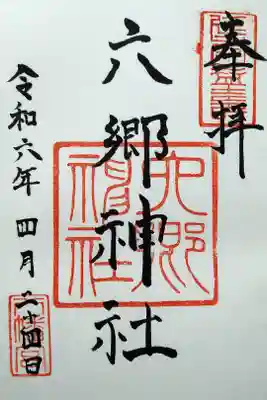 奉拝
六郷神社
令和六年 四月 二十四日
六郷神社